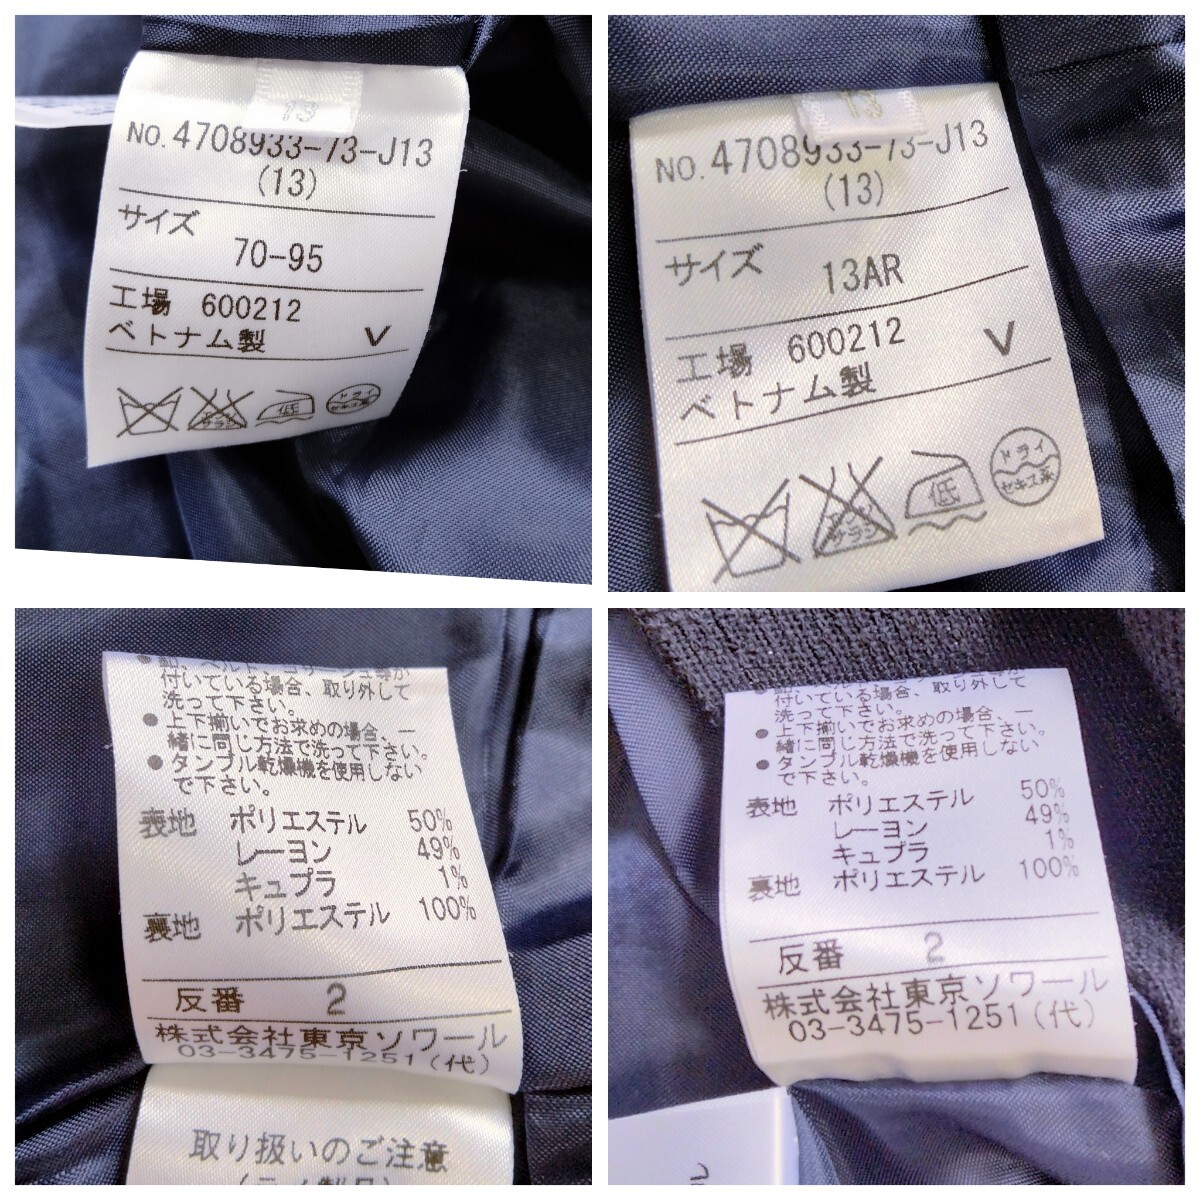 13
NO. 4708933-73-J13
(13)
サイズ
70-95
工場 600212
ベトナム製 V
エンソ
サラシ
低
ドライ
セキユ系
13
NO. 4708933-73-J13
(13)
サイズ 13AR
工場 600212 V
ベトナム製
エンソ
サラシ
低
ドライ
セキユ系
付いている場合、取り外して
洗って下さい。
●上下揃いでお求めの場合、一
緒に同じ方法で洗って下さい。
●タンブル乾燥機を使用しない
で下さい。
表地 ポリエステル 50%
レーヨン 49%
キュプラ 1%
裏地 ポリエステル 100%
反番 2
株式会社東京ソワール
03-3475-1251(代)
取り扱いのご注意
付いている場合、取り外して
洗って下さい。
●上下揃いでお求めの場合、一
緒に同じ方法で洗って下さい。
●タンブル乾燥機を使用しない
で下さい。
表地 ポリエステル 50%
レーヨン 49%
キュプラ 1%
裏地 ポリエステル 100%
反番 2
株式会社東京ソワール
03-3475-1251(代)